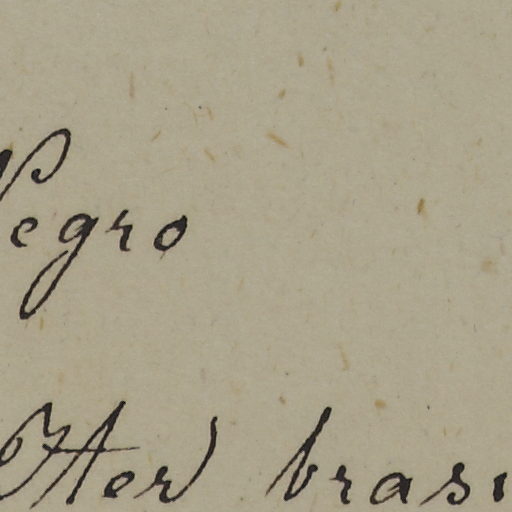 Negro
Iter brasi